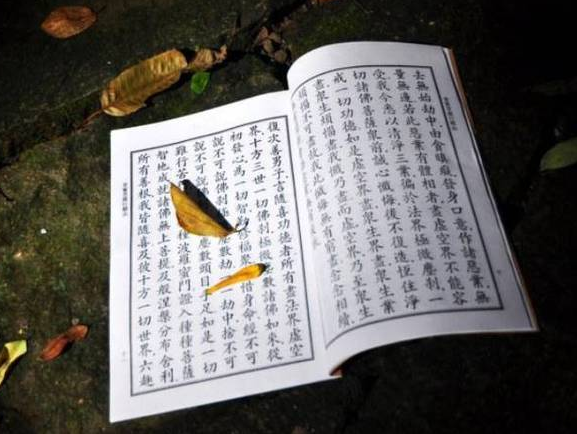 去無始劫中由貪瞋癡發身口意作諸惡業無
量無邊若此惡業有體相者盡虛空界不能容
受我今悉以清淨三業徧於法界極微塵剎一
切諸佛菩薩眾前誠心懺悔後不復造恆住淨
戒一切功德如是虛空界盡眾生界盡眾生業
盡眾生煩惱盡我懺乃盡而虛空界乃至眾生
煩惱不可盡故我此懺悔無有窮盡念念相續
復次善男子言隨喜功德者所有盡法界虛空
界十方三世一切佛剎極微塵數諸佛如來從
初發心為一切智福聚惜身命經不可
說不可說佛剎塵數劫一劫中捨不可
說不可說塵數頭目手足如是一切
難行苦種波羅蜜門證入種種菩薩
智地成就諸佛無上菩提及般涅槃分布舍利
所有善根我皆隨喜及彼十方一切世界六趣